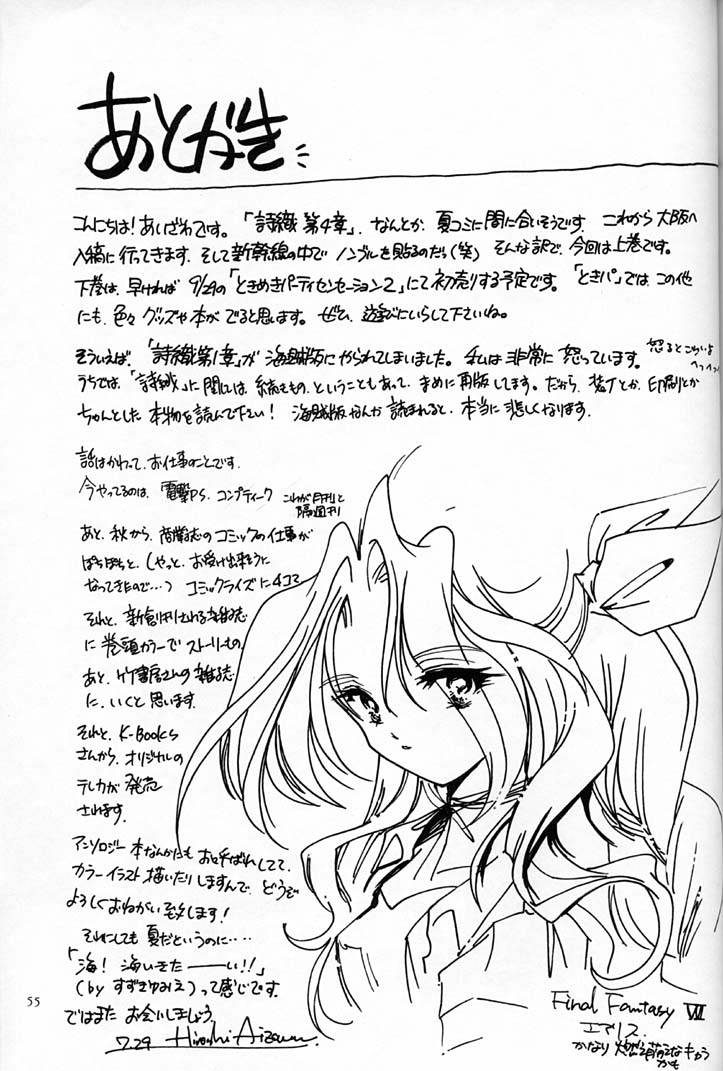 あとがき
こんにちは！あいざわです。「詩織 第4章」、なんとか、夏コミに間に合いそうです。これから大阪へ
入稿に行ってきます、そして新幹線の中でノンブルを貼るのだら(笑) そんな訳で、今回は上巻です。
下巻は、早ければ 9/29の「ときめきパーティセンセーション2」にて初売りする予定です。「ときパ」では、この他
にも、色々グッズや本がでると思います。ぜひ、遊びにいらして下さいね。
そういえば、「詩織第1章」が海賊版にやられてしまいました。私は非常に怒っています。
怒るとこわいよ
へっへっへっ
うちでは、「詩織」に関しては、続きもの、ということもあって、まめに再版します。だから、装丁とか、印刷とか
ちゃんとした本物を読んで下さい！ 海賊版なんか読まれると、本当に悲しくなります。
話はかわって、お仕事のことです。
今やってるのは、電撃PS、コンプティーク
これが月刊と
隔週刊
あと、秋から、商業誌のコミックの仕事が
ぽちぽちと、(やっと、お受け出来そうに
なってきたので…) コミックライズに4コマ
それと、新創刊される雑誌
に巻頭カラーでストーリーもの、
あと、竹書房さんの雑誌
に、いくと思います。
それと、K-Books
さんから、オリジナルの
テレカが発売
されます。
アンソロジー本なんかにも お呼ばれしてて、
カラーイラスト描いたりしますんで、どうぞ
よろしくおねがい致します！
それにしても夏だというのに‥‥
「海！海いきたーーい!!」
(by すずきゆみえ)って感じです。
ではまた お会いしましょう。
7.29 Hiroshi Aizawa.
55
Final Fantasy VII
エアリス.
かなり燃え萌えなキャラ
かも